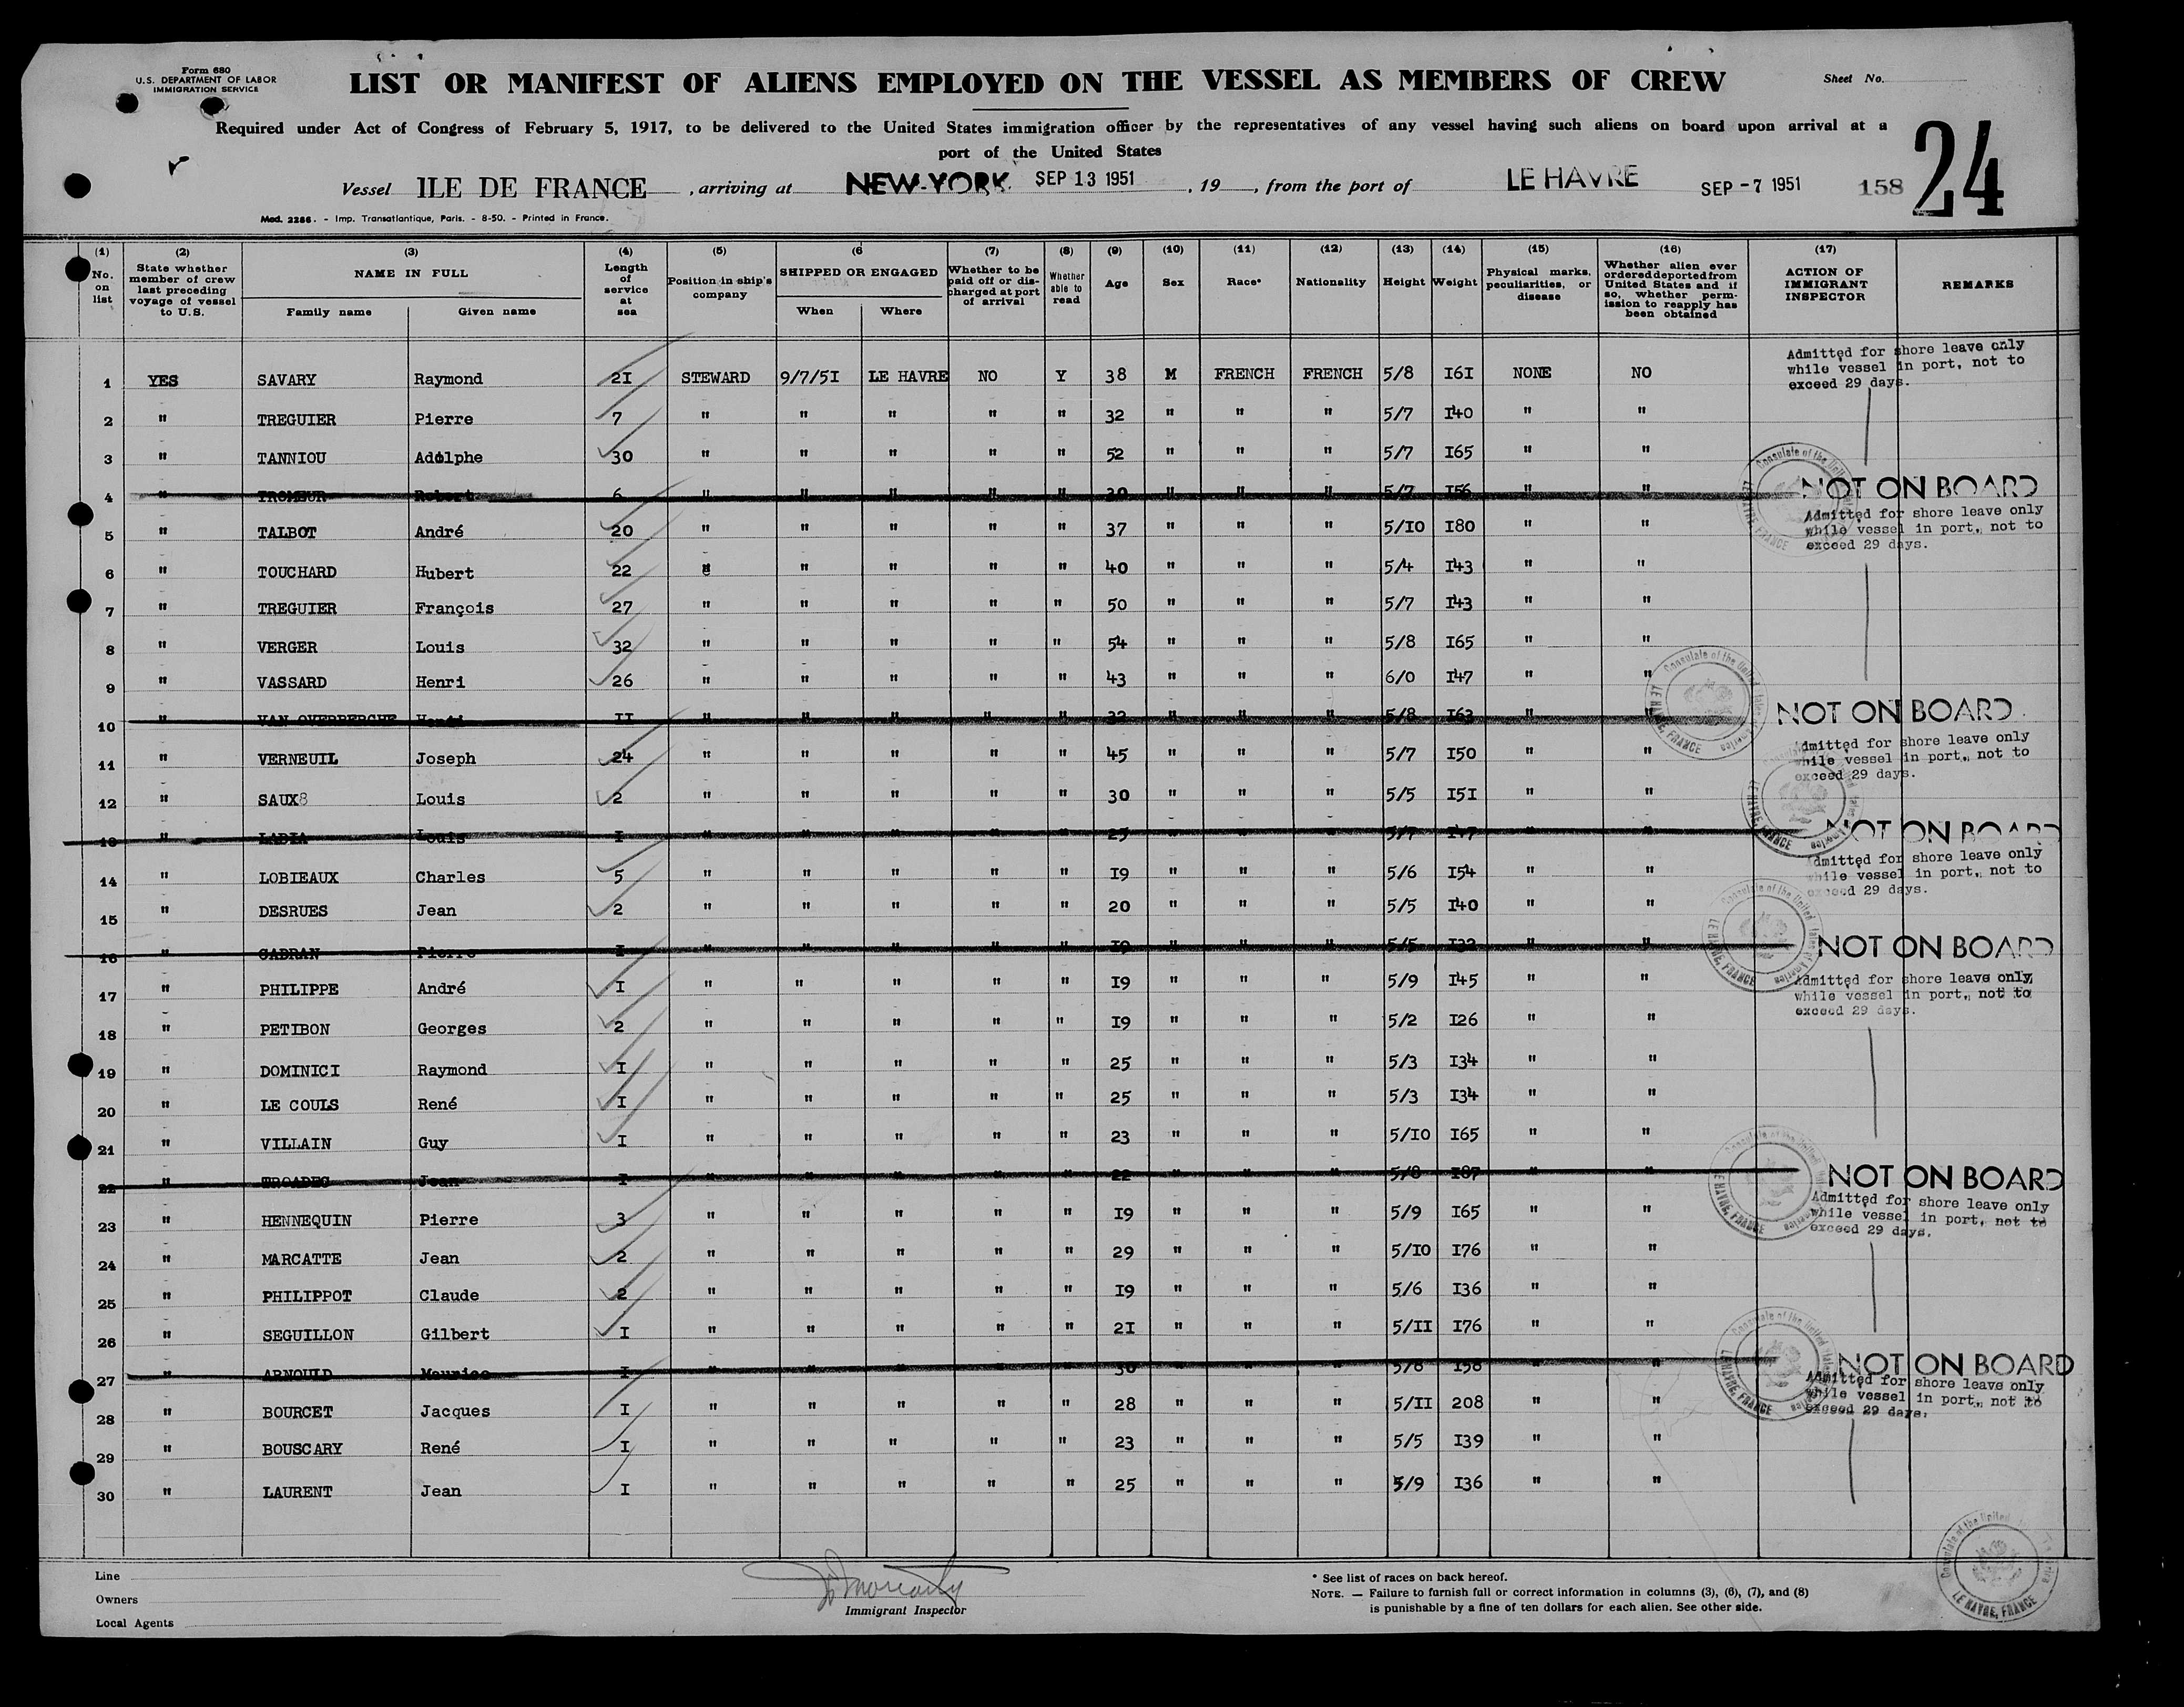 Form 680
U.S. DEPARTMENT OF LABOR
IMMIGRATION SERVICE
LIST OR MANIFEST OF ALIENS EMPLOYED ON THE VESSEL AS MEMBERS OF CREW
Sheet No.
Required under Act of Congress of February 5, 1917, to be delivered to the United States immigration officer by the representatives of any vessel having such aliens on board upon arrival at a
port of the United States
24
Vessel ILE DE FRANCE , arriving at NEW-YORK. SEP 13 1951 , 19 , from the port of LE HAVRE SEP -7 1951 158
Mod. 2266. - Imp. Transatlantique, Paris. - 8-50. - Printed in France.
(1) No. on list
(2) State whether member of crew last preceding voyage of vessel to U.S.
(3) NAME IN FULL Family name Given name
(4) Length of service at sea
(5) Position in ship's company
(6 SHIPPED OR ENGAGED When Where
(7) Whether to be paid off or discharged at port of arrival
(8) Whether able to read
(9) Age
(10) Sex
(11) Race*
(12) Nationality
(13) Height
(14) Weight
(15) Physical marks, peculiarities, or disease
(16) Whether alien ever ordered deported from United States and if so, whether permission to reapply has been obtained
(17) ACTION OF IMMIGRANT INSPECTOR
REMARKS
Admitted for shore leave only
while vessel in port, not to
exceed 29 days.
1 YES SAVARY Raymond 2I STEWARD 9/7/5I LE HAVRE NO Y 38 M FRENCH FRENCH 5/8 I6I NONE NO
2 " TREGUIER Pierre 7 " " " " " 32 " " " 5/7 I40 " "
3 " TANNIOU Adolphe 30 " " " " " 52 " " " 5/7 I65 " "
4 " TROMEUR Robert 6 " " " " " 30 " " " 5/7 I56 " " NOT ON BOARD
Admitted for shore leave only
while vessel in port, not to
exceed 29 days.
5 " TALBOT André 20 " " " " " 37 " " " 5/I0 I80 " "
6 " TOUCHARD Hubert 22 " " " " " 40 " " " 5/4 I43 " "
7 " TREGUIER François 27 " " " " " 50 " " " 5/7 I43 " "
8 " VERGER Louis 32 " " " " " 54 " " " 5/8 I65 " "
9 " VASSARD Henri 26 " " " " " 43 " " " 6/0 I47 " "
10 " VAN OVERBERGHE Henri II " " " " " 32 " " " 5/8 I63 " " NOT ON BOARD
Admitted for shore leave only
while vessel in port, not to
exceed 29 days.
11 " VERNEUIL Joseph 24 " " " " " 45 " " " 5/7 I50 " "
12 " SAUX8 Louis 2 " " " " " 30 " " " 5/5 I5I " "
13 " LABIA Louis I " " " " " 25 " " " 5/7 I47 " " NOT ON BOARD
Admitted for shore leave only
while vessel in port, not to
exceed 29 days.
14 " LOBIEAUX Charles 5 " " " " " I9 " " " 5/6 I54 " "
15 " DESRUES Jean 2 " " " " " 20 " " " 5/5 I40 " "
16 " CADRAN Pierre I " " " " " I9 " " " 5/5 I32 " " NOT ON BOARD
Admitted for shore leave only
while vessel in port, not to
exceed 29 days.
17 " PHILIPPE André I " " " " " I9 " " " 5/9 I45 " "
18 " PETIBON Georges 2 " " " " " I9 " " " 5/2 I26 " "
19 " DOMINICI Raymond I " " " " " 25 " " " 5/3 I34 " "
20 " LE COULS René I " " " " " 25 " " " 5/3 I34 " "
21 " VILLAIN Guy I " " " " " 23 " " " 5/I0 I65 " "
22 " TROADEC Jean I " " " " " 22 " " " 5/8 I87 " " NOT ON BOARD
Admitted for shore leave only
while vessel in port, not to
exceed 29 days.
23 " HENNEQUIN Pierre 3 " " " " " I9 " " " 5/9 I65 " "
24 " MARCATTE Jean 2 " " " " " 29 " " " 5/I0 I76 " "
25 " PHILIPPOT Claude 2 " " " " " I9 " " " 5/6 I36 " "
26 " SEGUILLON Gilbert I " " " " " 2I " " " 5/II I76 " "
27 " ARNOULD Maurice I " " " " " 30 " " " 5/8 I58 " " NOT ON BOARD
Admitted for shore leave only
while vessel in port, not to
exceed 29 days.
28 " BOURCET Jacques I " " " " " 28 " " " 5/II 208 " "
29 " BOUSCARY René I " " " " " 23 " " " 5/5 I39 " "
30 " LAURENT Jean I " " " " " 25 " " " 5/9 I36 " "
Consulate of the United States of America
LE HAVRE, FRANCE
Line
Owners
Local Agents
Immigrant Inspector
* See list of races on back hereof.
NOTE. — Failure to furnish full or correct information in columns (3), (6), (7), and (8)
is punishable by a fine of ten dollars for each alien. See other side.